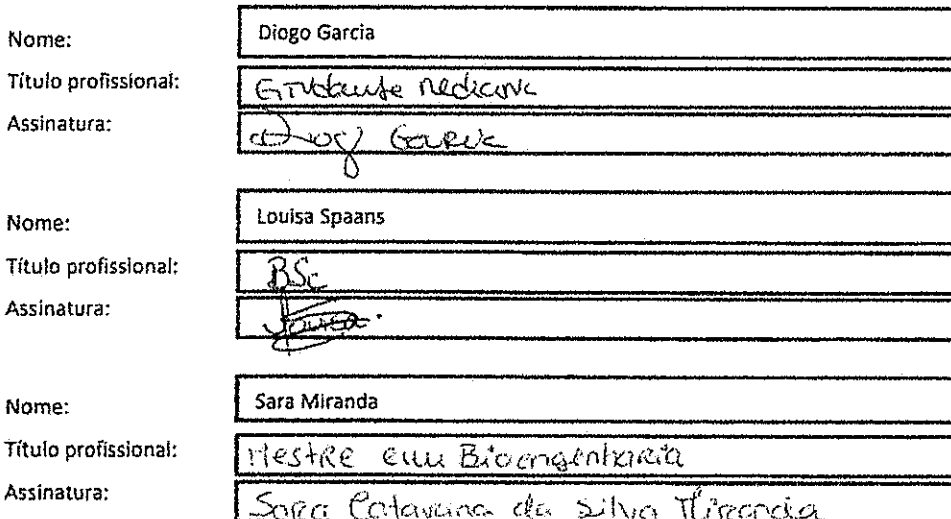 Nome: Diogo Garcia
Título profissional: Estudante Medicina
Assinatura: Diog Garcia
Nome: Louisa Spaans
Título profissional: BSc
Assinatura: Louisa
Nome: Sara Miranda
Título profissional: Mestre em Bioengenharia
Assinatura: Sara Catarina da Silva Miranda